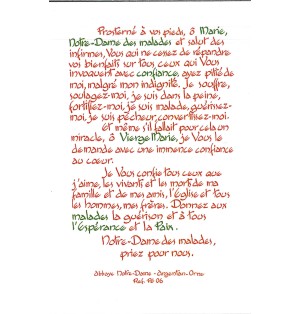 Prosterné à vos pieds, ô Marie,
Notre-Dame des malades et salut des
infirmes, Vous qui ne cessez de répandre
vos bienfaits sur tous ceux qui Vous
invoquent avec confiance, ayez pitié de
moi, malgré mon indignité. Je souffre,
soulagez-moi, je suis dans la peine,
fortifiez-moi, je suis malade, guérissez-
moi, je suis pécheur, convertissez-moi.
Et même s'il fallait pour cela un
miracle, ô Vierge Marie, je Vous le
demande avec une immence confiance
au coeur.
Je Vous confie tous ceux que
j'aime, les vivants et les morts de ma
famille et de mes amis, l'Église et tous
les hommes, mes frères. Donnez aux
malades la guérison et à tous
l'Espérance et la Paix.
Notre-Dame des malades,
priez pour nous.
Abbaye Notre-Dame - Argentan-Orne
Réf. PB 06